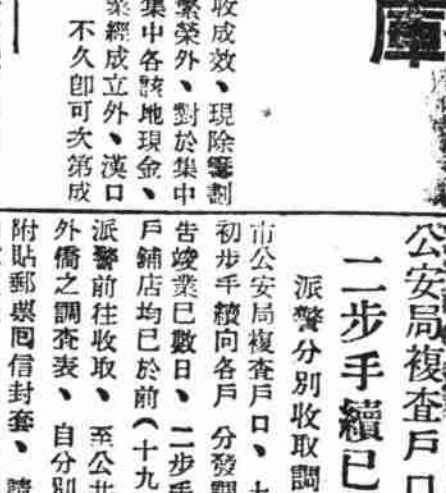 庫
收成效、現除籌劃
繁榮外、對於集中
集中各該地現金、
業經成立外、漢口
不久卽可次第成
公安局複查戶口
二步手續已
派警分別收取調
市公安局複查戶口、
初步手續向各戶 分發調
告竣業已數日、二步手
戶鋪店均已於前(十九
派警前往收取、至公共
外僑之調查表、自分別
附貼郵票囘信封套、請